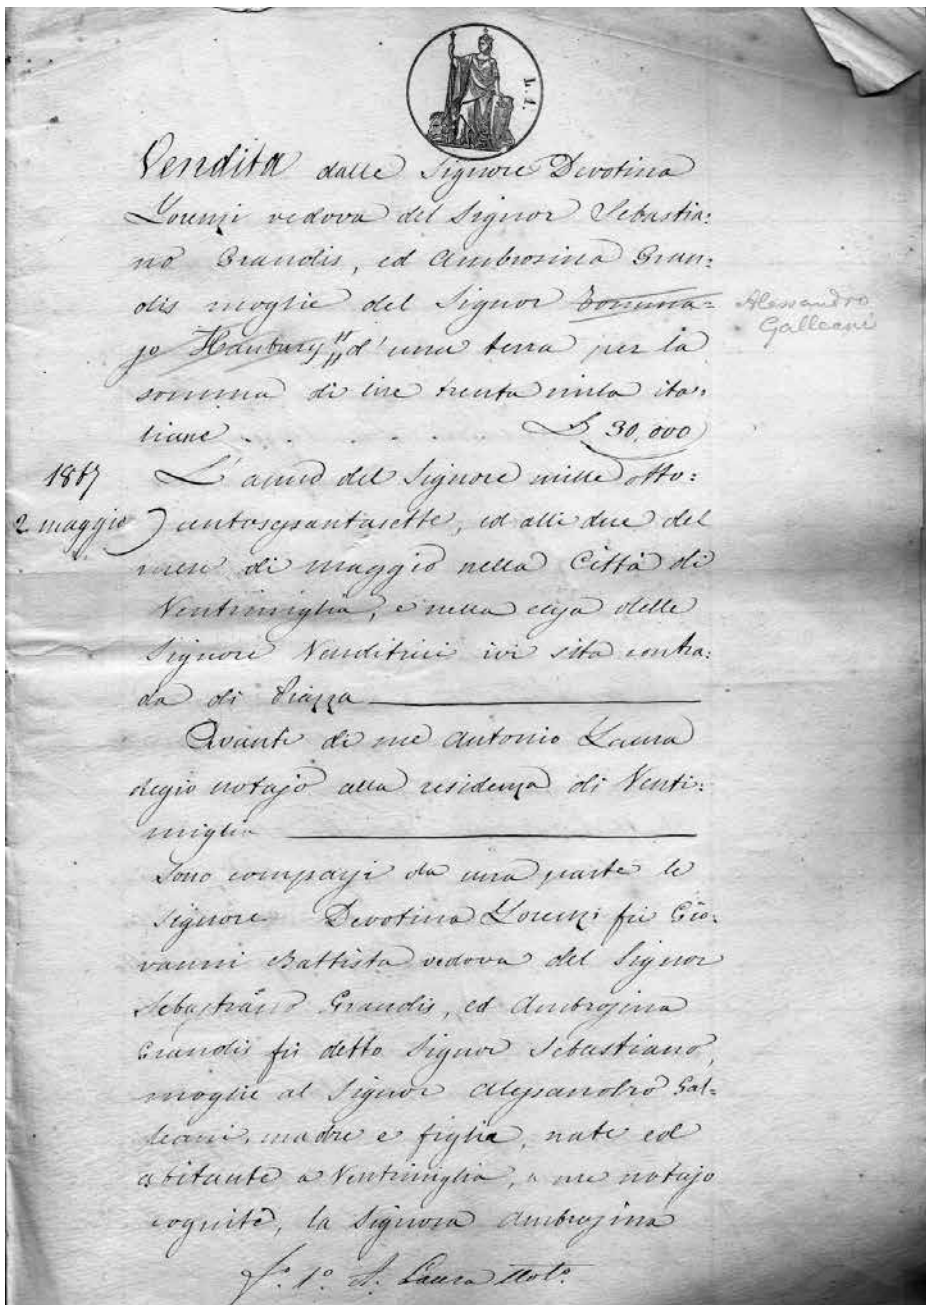 L. 1.
Vendita dalle Signore Devotina
Lorenzi vedova del Signor Sebastia:
no Grandis, ed Ambrosina Gran:
dis moglie del Signor Tomma=
so Hanbury d'una terra per la
Alessandro
Galleani
somma di lire trenta mila ita:
liane . . . . . . L 30,000
1867
2 maggio
L'anno del Signore mille otto:
centosessantasette, ed alli due del
mese di maggio nella Città di
Ventimiglia, e nella casa delle
Signore Venditrici ivi sita contra:
da di Piazza
Avanti di me Antonio Laura
Regio notajo alla residenza di Venti:
miglia
Sono comparsi da una parte le
Signore Devotina Lorenzi fu Gio:
vanni Battista vedova del Signor
Sebastiano Grandis, ed Ambrosina
Grandis fu detto Signor Sebastiano,
moglie al Signor Alessandro Gal=
leani, madre e figlia, nate ed
abitante a Ventimiglia, a me notajo
cognite, la Signora Ambrosina
f.º 1.º A. Laura Not.º